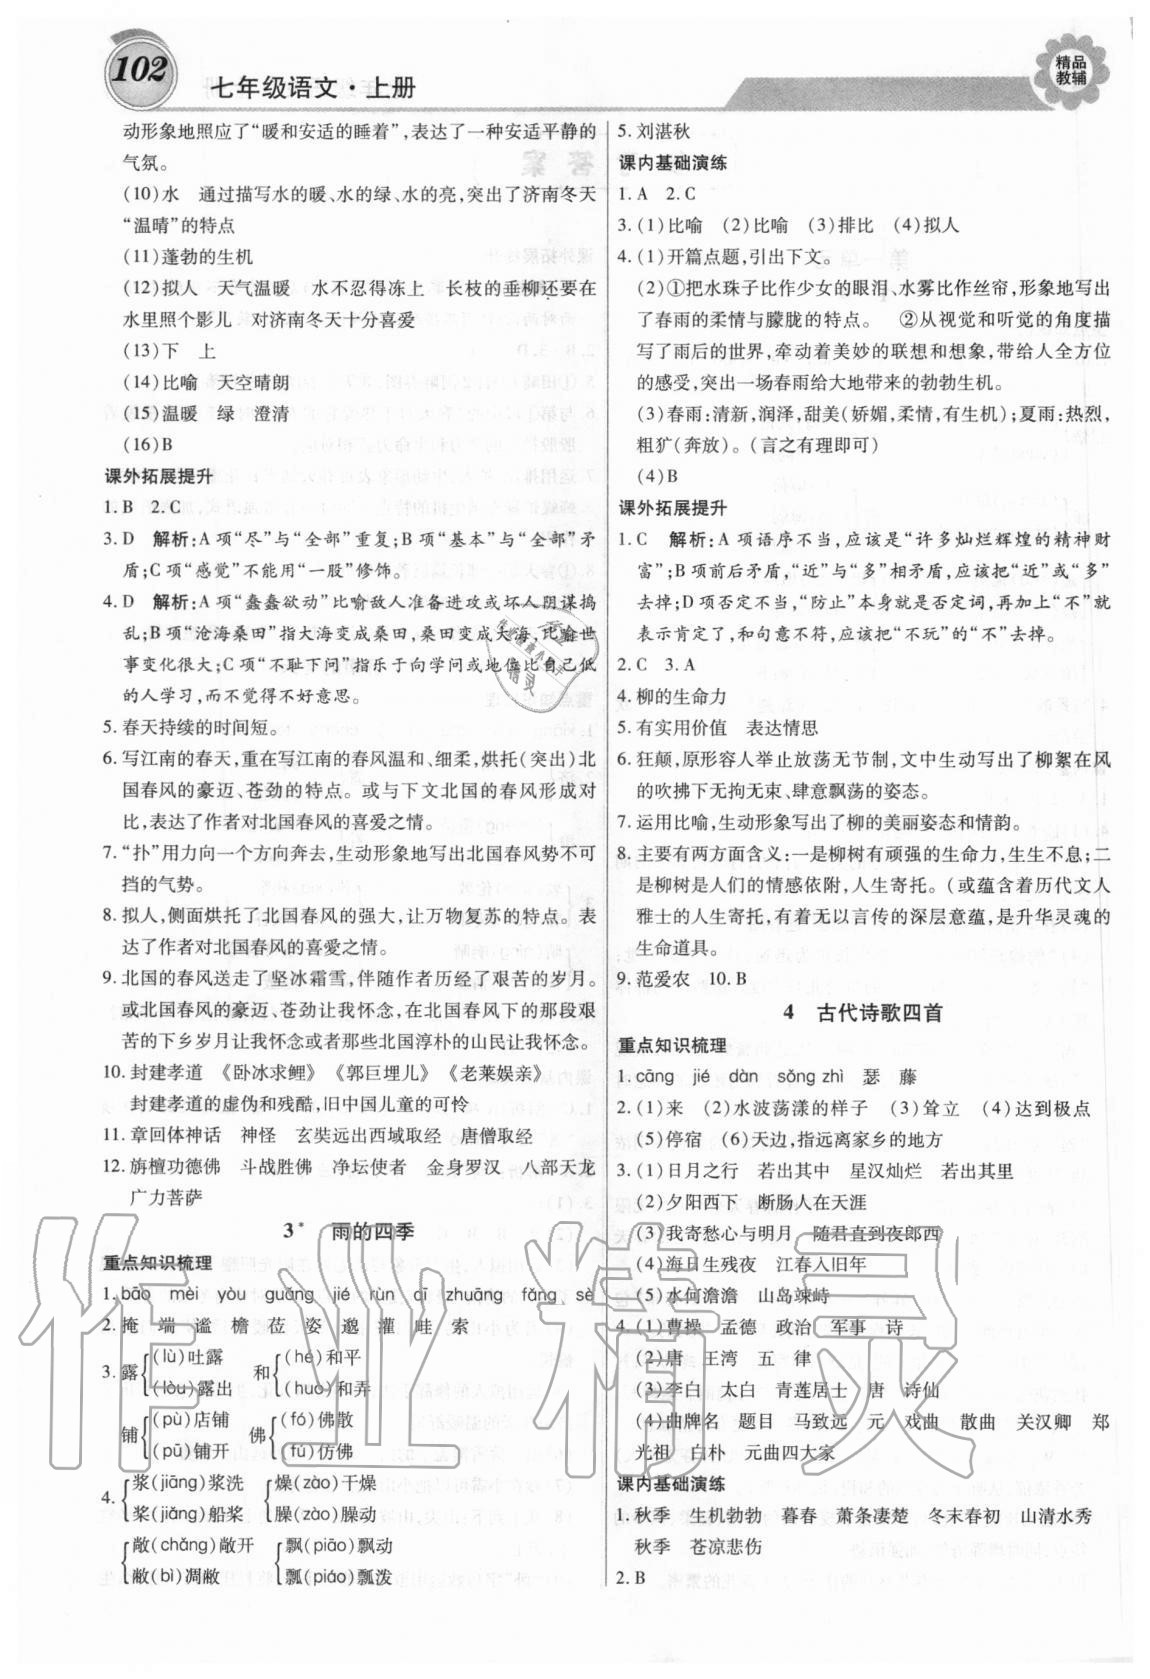 102
七年级语文·上册
精品
教辅
动形象地照应了“暖和安适的睡着”,表达了一种安适平静的
气氛。
(10)水　通过描写水的暖、水的绿、水的亮,突出了济南冬天
“温晴”的特点
(11)蓬勃的生机
(12)拟人　天气温暖　水不忍得冻上　长枝的垂柳还要在
水里照个影儿　对济南冬天十分喜爱
(13)下　上
(14)比喻　天空晴朗
(15)温暖　绿　澄清
(16)B
课外拓展提升
1. B　2. C
3. D　解析:A 项“尽”与“全部”重复;B 项“基本”与“全部”矛
盾;C 项“感觉”不能用“一股”修饰。
4. D　解析:A 项“蠢蠢欲动”比喻敌人准备进攻或坏人阴谋捣
乱;B 项“沧海桑田”指大海变成桑田,桑田变成大海,比喻世
事变化很大;C 项“不耻下问”指乐于向学问或地位比自己低
的人学习,而不觉得不好意思。
5. 春天持续的时间短。
6. 写江南的春天,重在写江南的春风温和、细柔,烘托(突出)北
国春风的豪迈、苍劲的特点。或与下文北国的春风形成对
比,表达了作者对北国春风的喜爱之情。
7. “扑”用力向一个方向奔去,生动形象地写出北国春风势不可
挡的气势。
8. 拟人,侧面烘托了北国春风的强大,让万物复苏的特点。表
达了作者对北国春风的喜爱之情。
9. 北国的春风送走了坚冰霜雪,伴随作者历经了艰苦的岁月。
或北国春风的豪迈、苍劲让我怀念或在北国春风下的那段艰
苦的下乡岁月让我怀念或者那些北国淳朴的山民让我怀念。
10. 封建孝道　《卧冰求鲤》　《郭巨埋儿》　《老莱娱亲》
封建孝道的虚伪和残酷,旧中国儿童的可怜
11. 章回体神话　神怪　玄奘远出西域取经　唐僧取经
12. 旃檀功德佛　斗战胜佛　净坛使者　金身罗汉　八部天龙
广力菩萨
3*　雨的四季
重点知识梳理
1. bāo　mèi　yòu　guǎng　jié　rùn　dī　zhuāng　fǎng　sè
2. 掩　端　谧　檐　莅　姿　邈　灌　畦　索
3. 露{(lù)吐露　和{(hé)和平
(lòu)露出　(huó)和弄
铺{(pù)店铺　佛{(fó)佛散
(pū)铺开　(fú)仿佛
4. {浆(jiāng)浆洗　{燥(zào)干燥
桨(jiǎng)船桨　臊(zào)臊动
{敞(chǎng)敞开　{飘(piāo)飘动
敝(bì)凋敝　瓢(piáo)瓢泼
5. 刘湛秋
课内基础演练
1. A　2. C
3. (1)比喻　(2)比喻　(3)排比　(4)拟人
4. (1)开篇点题,引出下文。
(2)①把水珠子比作少女的眼泪,水雾比作丝帘,形象地写出
了春雨的柔情与朦胧的特点。　②从视觉和听觉的角度描
写了雨后的世界,牵动着美妙的联想和想象,带给人全方位
的感受,突出一场春雨给大地带来的勃勃生机。
(3)春雨:清新,润泽,甜美(娇媚,柔情,有生机);夏雨:热烈,
粗犷(奔放)。(言之有理即可)
(4)B
课外拓展提升
1. C　解析:A 项语序不当,应该是“许多灿烂辉煌的精神财
富”;B 项前后矛盾,“近”与“多”相矛盾,应该把“近”或“多”
去掉;D 项否定不当,“防止”本身就是否定词,再加上“不”就
表示肯定了,和句意不符,应该把“不玩”的“不”去掉。
2. C　3. A
4. 柳的生命力
5. 有实用价值　表达情思
6. 狂颠,原形容人举止放荡无节制,文中生动写出了柳絮在风
的吹拂下无拘无束、肆意飘荡的姿态。
7. 运用比喻,生动形象写出了柳的美丽姿态和情韵。
8. 主要有两方面含义:一是柳树有顽强的生命力,生生不息;二
是柳树是人们的情感依附,人生寄托。(或蕴含着历代文人
雅士的人生寄托,有着无以言传的深层意蕴,是升华灵魂的
生命道具。
9. 范爱农　10. B
4　古代诗歌四首
重点知识梳理
1. cāng　jié　dàn　sǒng zhì　瑟　藤
2. (1)来　(2)水波荡漾的样子　(3)耸立　(4)达到极点
(5)停宿　(6)天边,指远离家乡的地方
3. (1)日月之行　若出其中　星汉灿烂　若出其里
(2)夕阳西下　断肠人在天涯
(3)我寄愁心与明月　随君直到夜郎西
(4)海日生残夜　江春入旧年
(5)水何澹澹　山岛竦峙
4. (1)曹操　孟德　政治　军事　诗
(2)唐　王湾　五　律
(3)李白　太白　青莲居士　唐　诗仙
(4)曲牌名　题目　马致远　元　戏曲　散曲　关汉卿　郑
光祖　白朴　元曲四大家
课内基础演练
1. 秋季　生机勃勃　暮春　萧条凄楚　冬末春初　山清水秀
秋季　苍凉悲伤
2. B
作业精灵